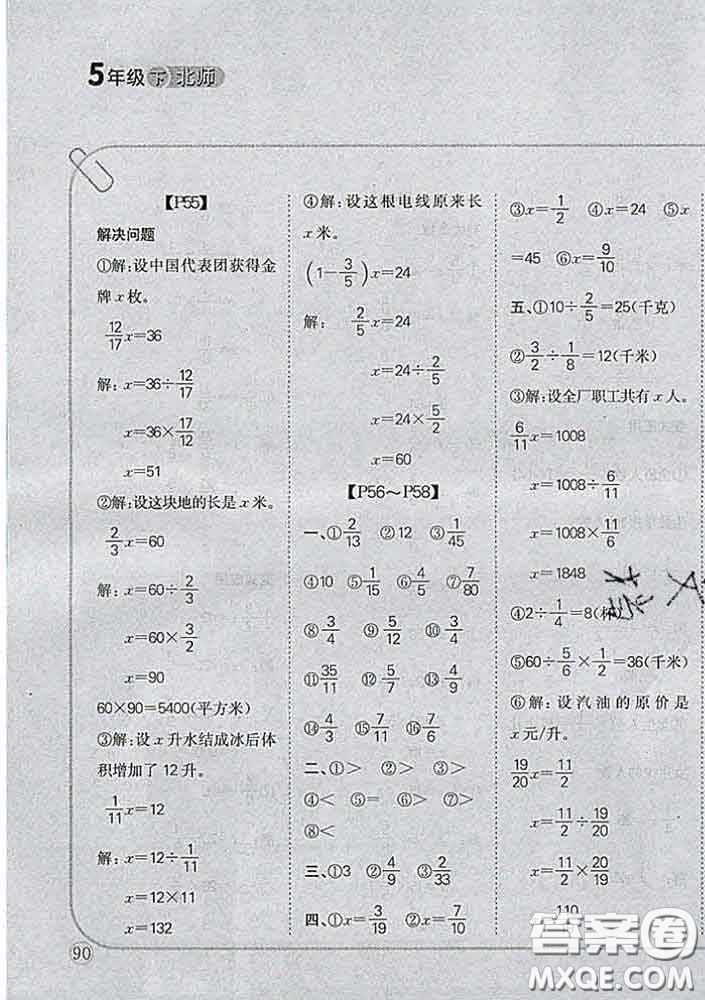 5年级 下 北师
【P55】
解决问题
①解:设中国代表团获得金
牌 x 枚。
12/17 x=36
解: x=36÷12/17
x=36×17/12
x=51
②解:设这块地的长是 x 米。
2/3 x=60
解: x=60÷2/3
x=60×3/2
x=90
60×90=5400(平方米)
③解:设 x 升水结成冰后体
积增加了 12 升。
1/11 x=12
解: x=12÷1/11
x=12×11
x=132
④解:设这根电线原来长
x 米。
(1-3/5)x=24
解: 2/5 x=24
x=24÷2/5
x=24×5/2
x=60
【P56~P58】
一、①2/13 ②12 ③1/45
④10 ⑤1/15 ⑥4/5 ⑦7/80
⑧3/4 ⑨5/12 ⑩3/4
⑪35/11 ⑫5/7 ⑬4/9
⑭4/3 ⑮7/11 ⑯7/6
二、①> ②> ③>
④< ⑤= ⑥< ⑦>
⑧<
三、①3 ②4/9 ③2/33
四、①x=3/19 ②x=7/10
③x=1/2 ④x=4 ⑤x
=45 ⑥x=9/10
五、①10÷2/5=25(千克)
②3/2÷1/8=12(千米)
③解:设全厂职工共有 x 人。
6/11 x=1008
x=1008÷6/11
x=1008×11/6
x=1848
④2÷1/4=8(杯)
⑤60÷5/6×1/2=36(千米)
⑥解:设汽油的原价是
x 元/升。
19/20 x=11/2
x=11/2÷19/20
x=11/2×20/19
110
90
答案圈
MXQE.COM